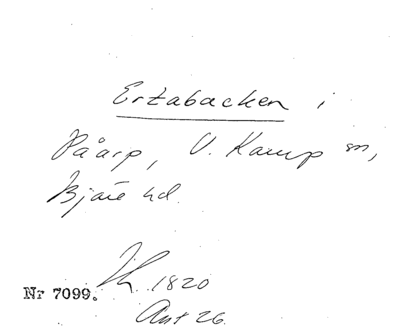 Ertabacken i
Påarp, V. Karup sn,
Bjäre hd.
1820
Nr 7099.
Ant 26.